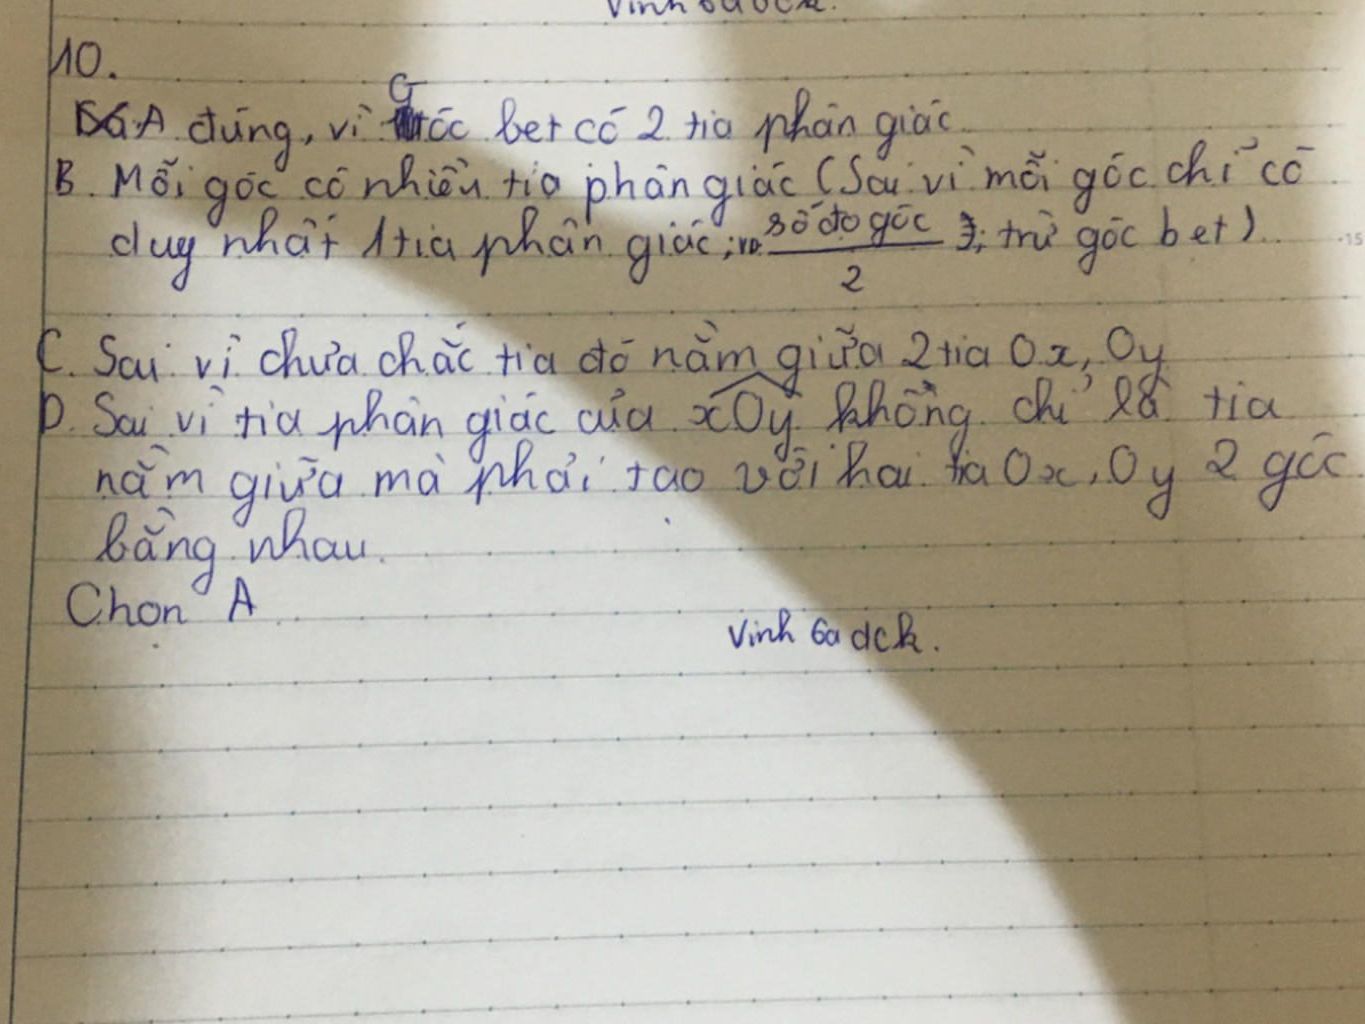 Vinh 6a dck.
10.
A đúng, vì Góc bet có 2 tia phân giác
B. Mỗi góc có nhiều tia phân giác (Sai vì mỗi góc chỉ có
duy nhất 1 tia phân giác; số đo góc / 2; trừ góc bet)
C. Sai vì chưa chắc tia đó nằm giữa 2 tia Ox, Oy
D. Sai vì tia phân giác của xOy không chỉ là tia
nằm giữa mà phải tao với hai tia Ox, Oy 2 góc
bằng nhau.
Chon A
Vinh 6a dck.
15